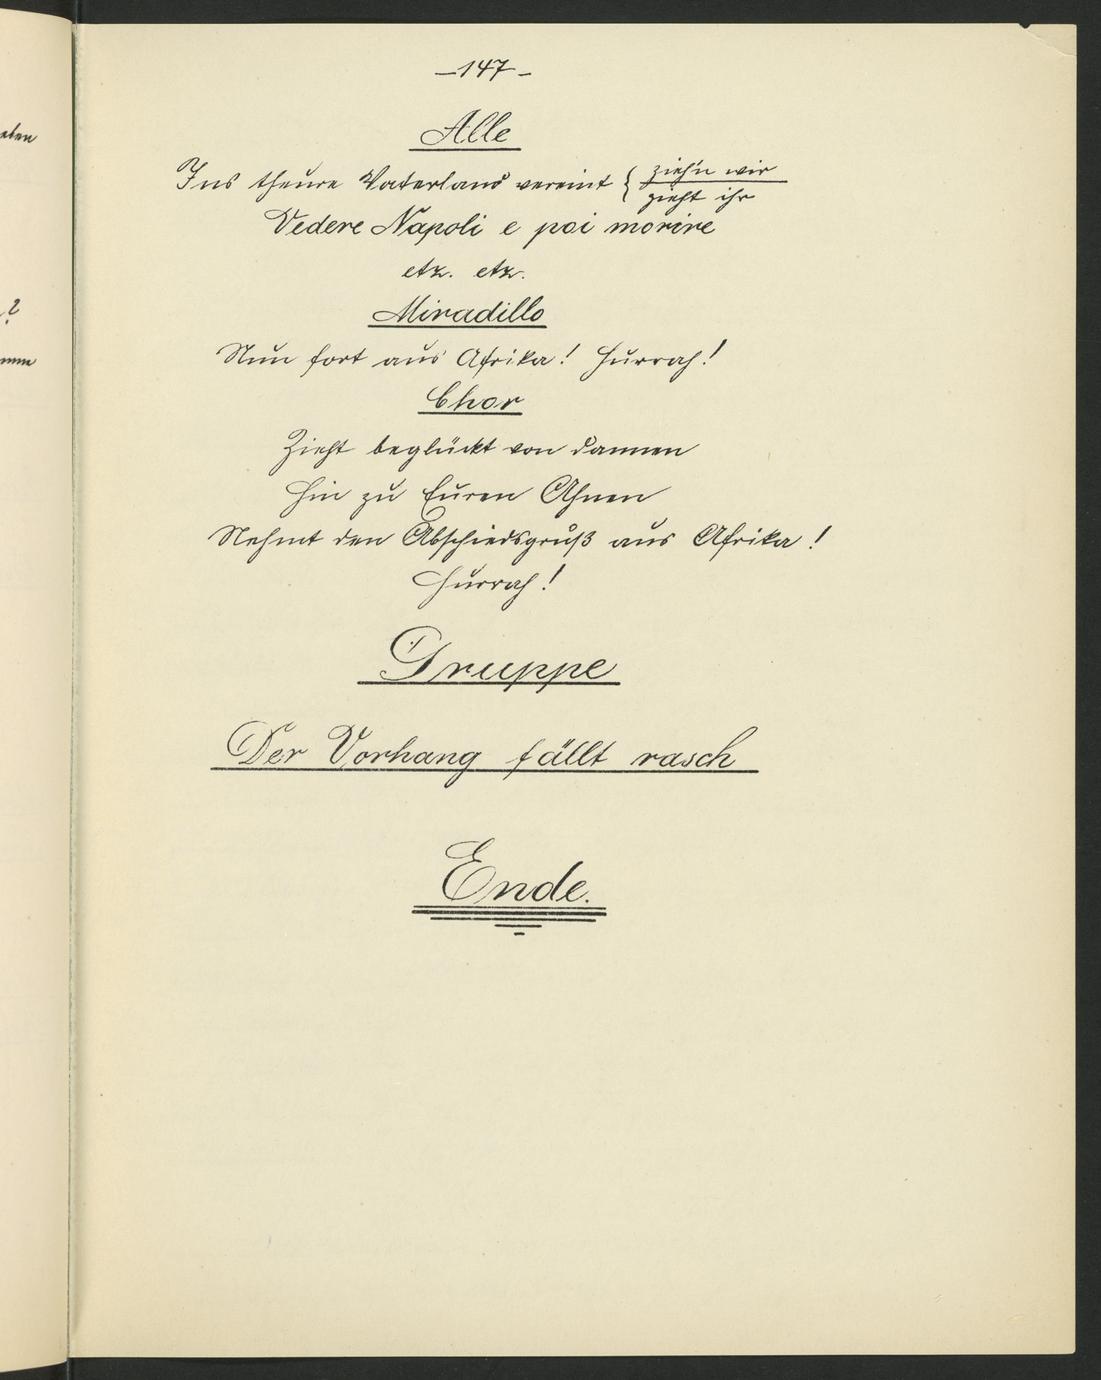 –147–
Alle
Ins theure Vaterland vereint { zieh'n wir
zieht ihr
Vedere Napoli e poi morire
etz. etz.
Miradillo
Nun fort aus Afrika! Hurrah!
Chor
Zieht beglückt von dannen
Hin zu Euren Ahnen
Nehmt den Abschiedsgruß aus Afrika!
Hurrah!
Gruppe
Der Vorhang fällt rasch
Ende.